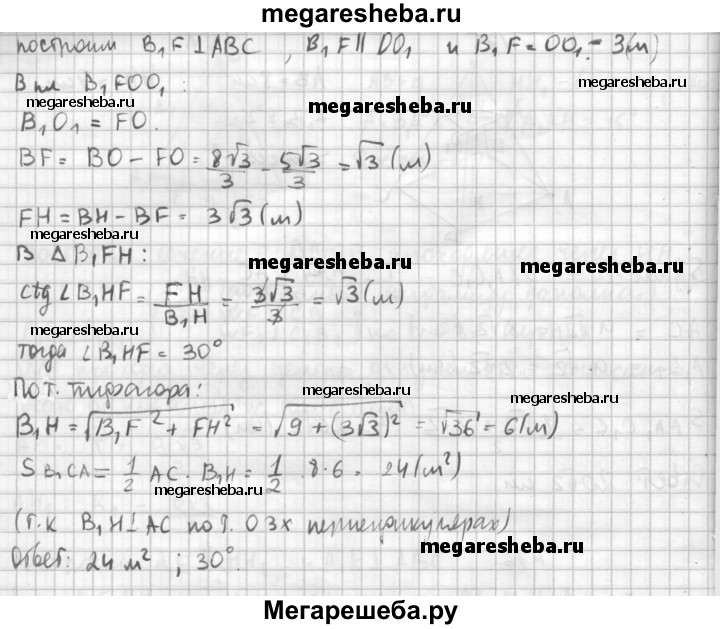 megaresheba.ru
построим B₁F⊥ABC , B₁F∥OO₁ и B₁F=OO₁=3(м)
В пл B₁FOO₁ :
megaresheba.ru megaresheba.ru megaresheba.ru
B₁O₁ = FO.
BF = BO - FO = 8√3/3 - 5√3/3 = √3 (м)
FH = BH - BF = 3√3 (м)
megaresheba.ru
В Δ B₁FH :
megaresheba.ru megaresheba.ru
ctg ∠B₁HF = FH/B₁H = 3√3/3 = √3 (м)
megaresheba.ru
тогда ∠B₁HF = 30°
По т. Пифагора:
megaresheba.ru megaresheba.ru
B₁H = √B₁F² + FH² = √9 + (3√3)² = √36 = 6(м)
megaresheba.ru
S B₁CA = 1/2 AC · B₁H = 1/2 · 8 · 6 = 24(м²)
megaresheba.ru
(т.к B₁H⊥AC по т. О 3х перпендикулярах)
megaresheba.ru
Ответ: 24 м² ; 30°.
Мегарешеба.ру